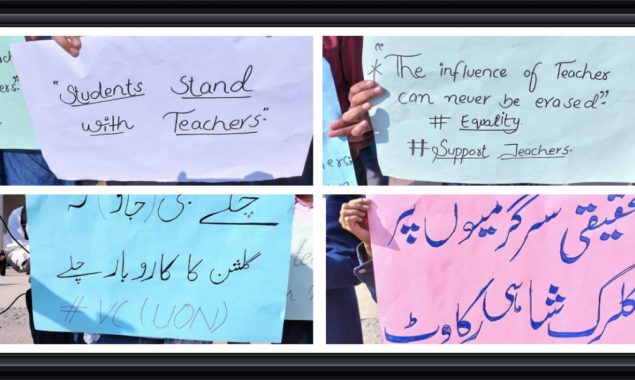 "Students Stand
with Teachers."
"
* The influence of Teacher
can never be erased".
# Equality
# Support Teachers.
چلے بھی (جاؤ) کہ
گلشن کا کاروبار چلے
#VC (UON)
تحقیقی سرگرمیوں پر
کلرک شاہی رکاوٹ